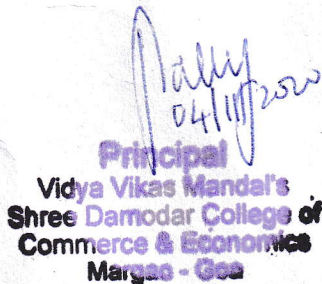 04/11/2020
Principal
Vidya Vikas Mandal's
Shree Damodar College of
Commerce & Economics
Margao - Goa